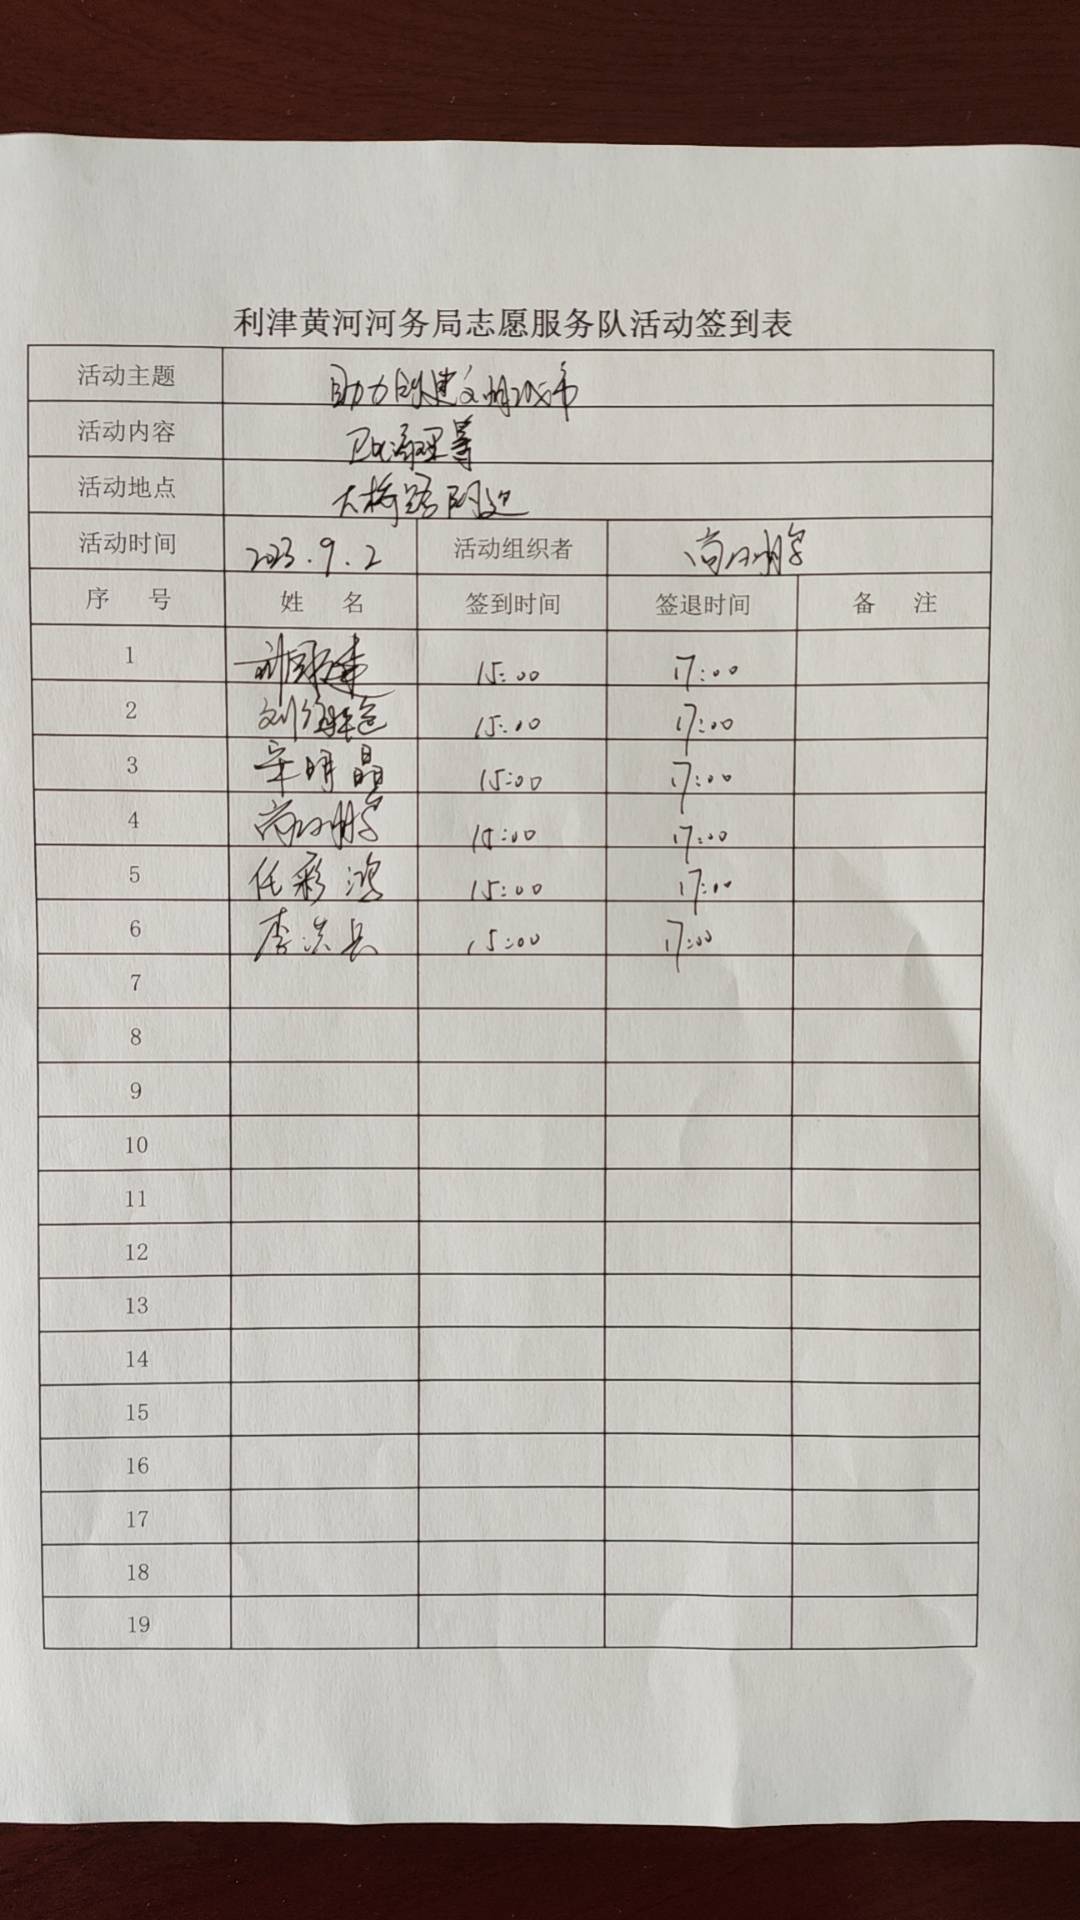 利津黄河河务局志愿服务队活动签到表
活动主题 助力创建文明城市
活动内容 卫生清理等
活动地点 大桥路附近
活动时间 2023.9.2 活动组织者 尚
序 号 姓 名 签到时间 签退时间 备 注
1 15:00 17:00
2 刘 15:00 17:00
3 宋明晶 15:00 17:00
4 尚 15:00 17:00
5 任彩鸿 15:00 17:00
6 李洪兵 15:00 17:00
7
8
9
10
11
12
13
14
15
16
17
18
19